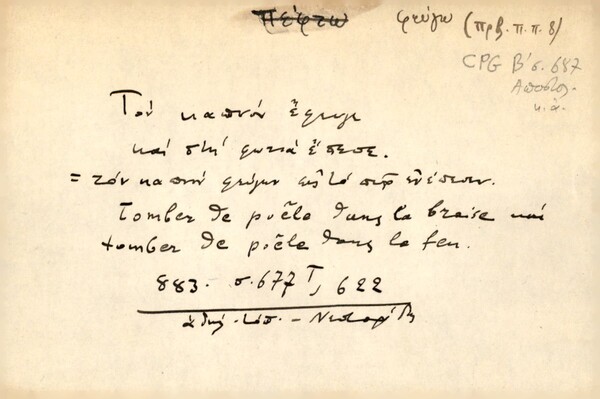 πέφτω φεύγω (πρβ. π. π. 8)
CPG Β' σ. 687
Αποστολ.
κ. ἀ.
Τον καπνόν ἔφυγε
καί στή φωτιά ἔπεσε.
= τόν καπνόν φεύγων εἰς τό πῦρ ἐνέπεσον.
Tomber de poêle dans la braise καί
tomber de poêle dans le feu.
883. σ. 677 Τ, 622